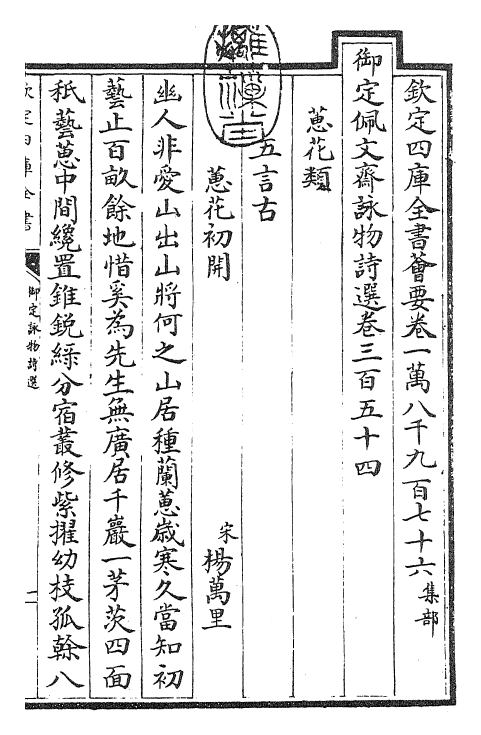 欽定四庫全書薈要卷一萬八千九百七十六 集部
御定佩文齋詠物詩選卷三百五十四
蕙花類
五言古
蕙花初開 宋 楊萬里
幽人非愛山出山將何之山居種蘭蕙歳寒久當知初
藝止百畝餘地惜奚為先生無廣居千巖一茅茨四面
秖藝蕙中間纔置錐銳緑分宿叢修紫擢幼枝孤榦八
欽定四庫全書
御定詠物詩選
一